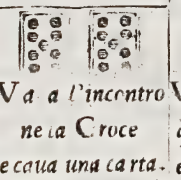 Va a l'incontro
ne la Croce
e caua una carta.